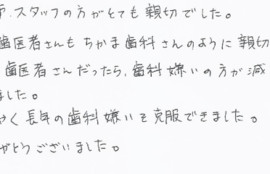 スタッフの方がとても親切でした。
歯医者さんもちかま歯科さんのように親切
歯医者さんだったら、歯科嫌いの方が減
ました。
く長年の歯科嫌いを克服できました。
がとうございました。